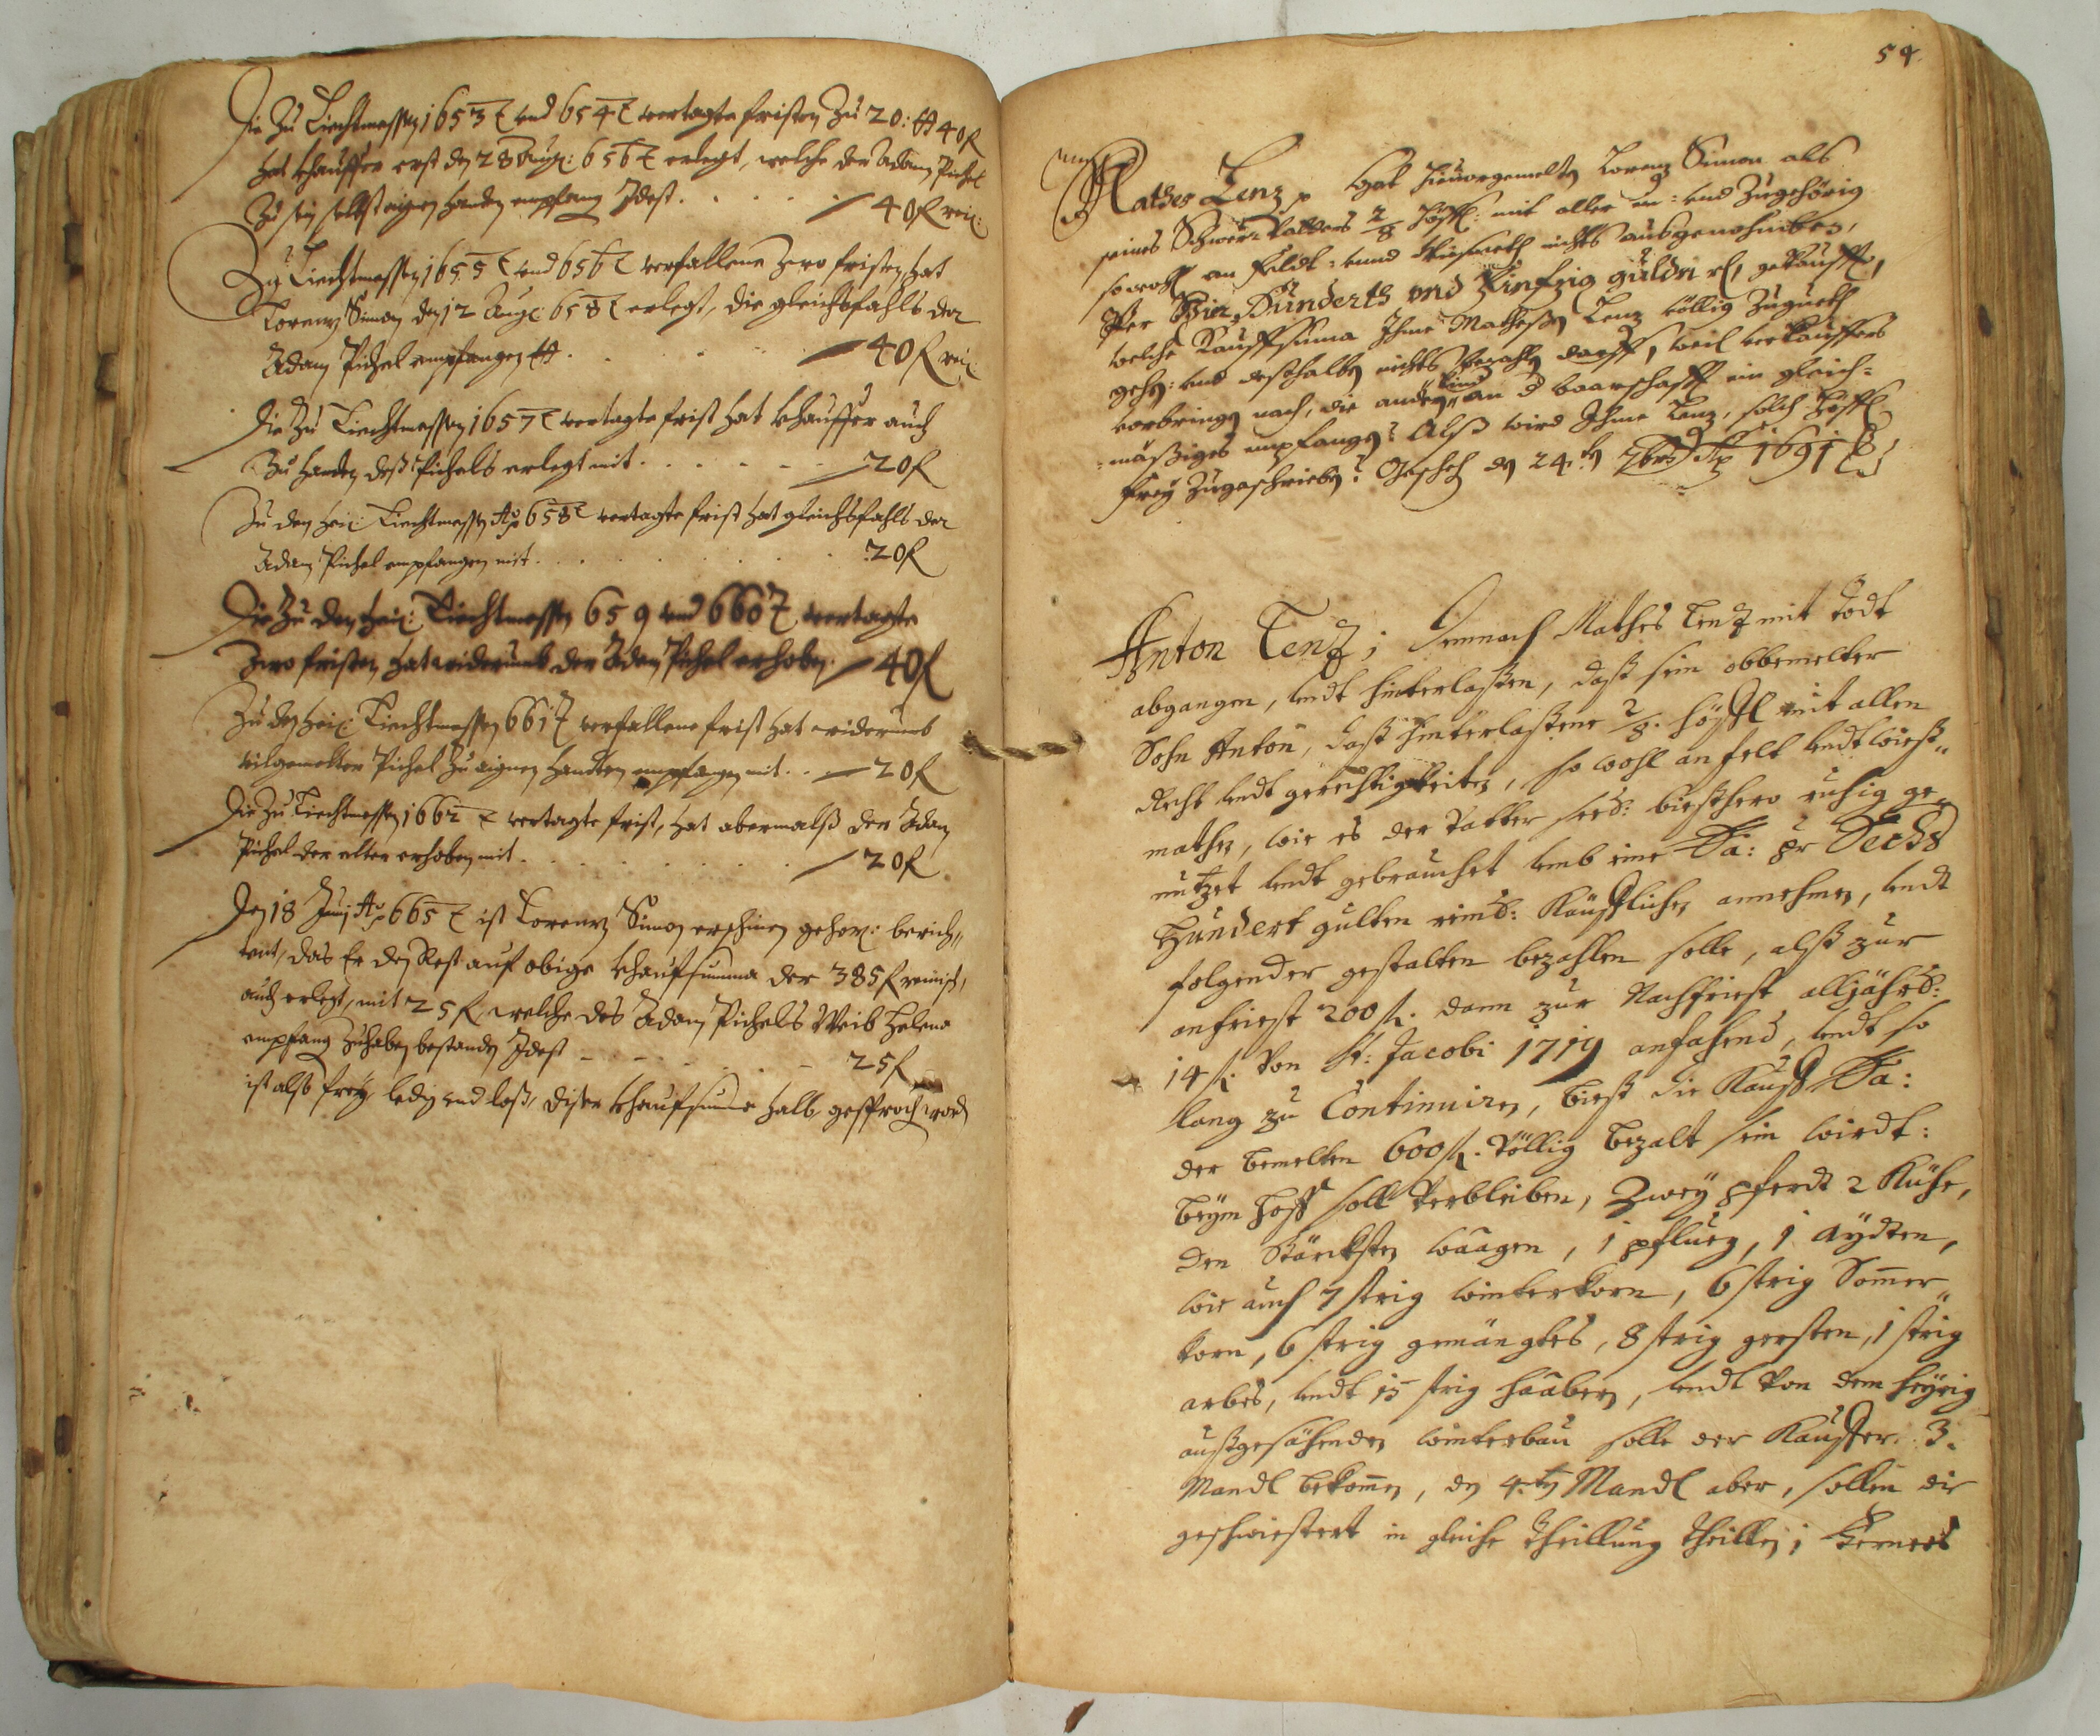 Die Zu Liechtmessen 1653 t und 654 t vertagte fristen Zu 20: tt 40 f
hat khauffer erst den 28 Aug: 656 t erlegt, welche der Adam Pichel
Zu sein selbst aignen handen empfang Idest . . . . . 40 f rein:
Zu Liechtmessen 1655 t und 656 t verfallene Zwo fristen, hat
Lorenz Simon den 12 Aug: 658 t erlegt, die gleichsfahls der
Adam Pichel empfangen tt . . . . . 40 f rein:
Die Zu Liechtmessen 1657 t vertagte frist hat khauffer auch
Zu handen deß Pichels erlegt mit . . . . . 20 f
Zu den hei: Liechtmessen Ao 658 t vertagte frist hat gleichsfahls der
Adam Pichel empfangen mit . . . . . 20 f
Die Zu den hei: Liechtmessen 659 und 660 t vertagte
Zwo fristen hat widerumb der Adam Pichel erhoben. 40 f
Zu den hei: Liechtmessen 661 t verfallene frist hat widerumb
vilgemelter Pichel Zu aignen handten empfangen mit . . 20 f
Die Zu Liechtmessen 1662 t vertagte frist, hat abermalß der Adam
Pichel der elter erhoben mit . . . . . 20 f
Den 18 Junj Ao 665 t ist Lorenz Simon erschinen gehors: berich„
tent, das Er den Rest auf obige khaufsumma der 385 f reinisch,
auch erlegt, mit 25 f, welche des Adam Pichels Weib Helena
empfang Zuhaben bestanden Idest . . . . . 25 f
ist also frey, ledig und loß, diser khaufsumma halb gesproch word
54.
Mathes Lenz hat hieuorgemelten Lorenz Simon als
seines Schwer Vatters 2/8 Höfl: mit aller an: und Zugehörig
sowoll an Feldt: unnd Wießmath nichts ausgenohmben,
Per Vier Hunderth vnd Finfzig gulden rl, gekaufft,
welche Kauffsuma Ihme Mathesen Lenz völlig Zugueth
gehet: und deßhalben nichts bezahlen darff, weil verkauffers
vorbringen nach, die andern Kind an d baarschafft ein gleich=
=mäßiges empfangen: Alß wird Ihme Lenz, solch Höfl
frey Zugeschrieben: Geschehen den 24ten 7br: Ao 1691
Anton Lentz; Demnach Mathes Lentz mit Todt
abgangen, undt hinterlaßen, daß sein obbemelter
Sohn Anton, daß hinterlaßene 2/8. höffl mit allen
Recht undt gerechtigkeiten, so wohl an felt undt wieß„
mathen, wie es der Vatter seel: bießhero ruhig ge„
nutzet undt gebrauchet umb eine Sa: pr Sechs
Hundert gulten reins: Kaüfflichen annehmen, undt
folgender gestalten bezahlen solle, alß zur
anfrist 200 fl. dann zur Nachfrist alljährl:
14 fl. von St: Jacobi 1719 anfahend, undt so
lang zu Continuiren, bieß die Kauff Sa:
der bemelten 600 fl. völlig bezalt sein wirdt:
Beym Hoff soll verbleiben, Zwey pferdt 2 Kühe,
den stärcksten waagen, 1 pflueg, 1 aydten,
wie auch 7 strig winterkorn, 6 strig Sommer„
korn, 6 strig gemängtes, 8 strig gersten, 1 strig
arbes, undt 15 strig haabern, undt von dem heyrig
außgesähenden winterbau solle der Kauffer 3.
Mandl bekommen, den 4.ten Mandl aber, sollen die
geschwistert in gleiche Theillung theillen; Ferners